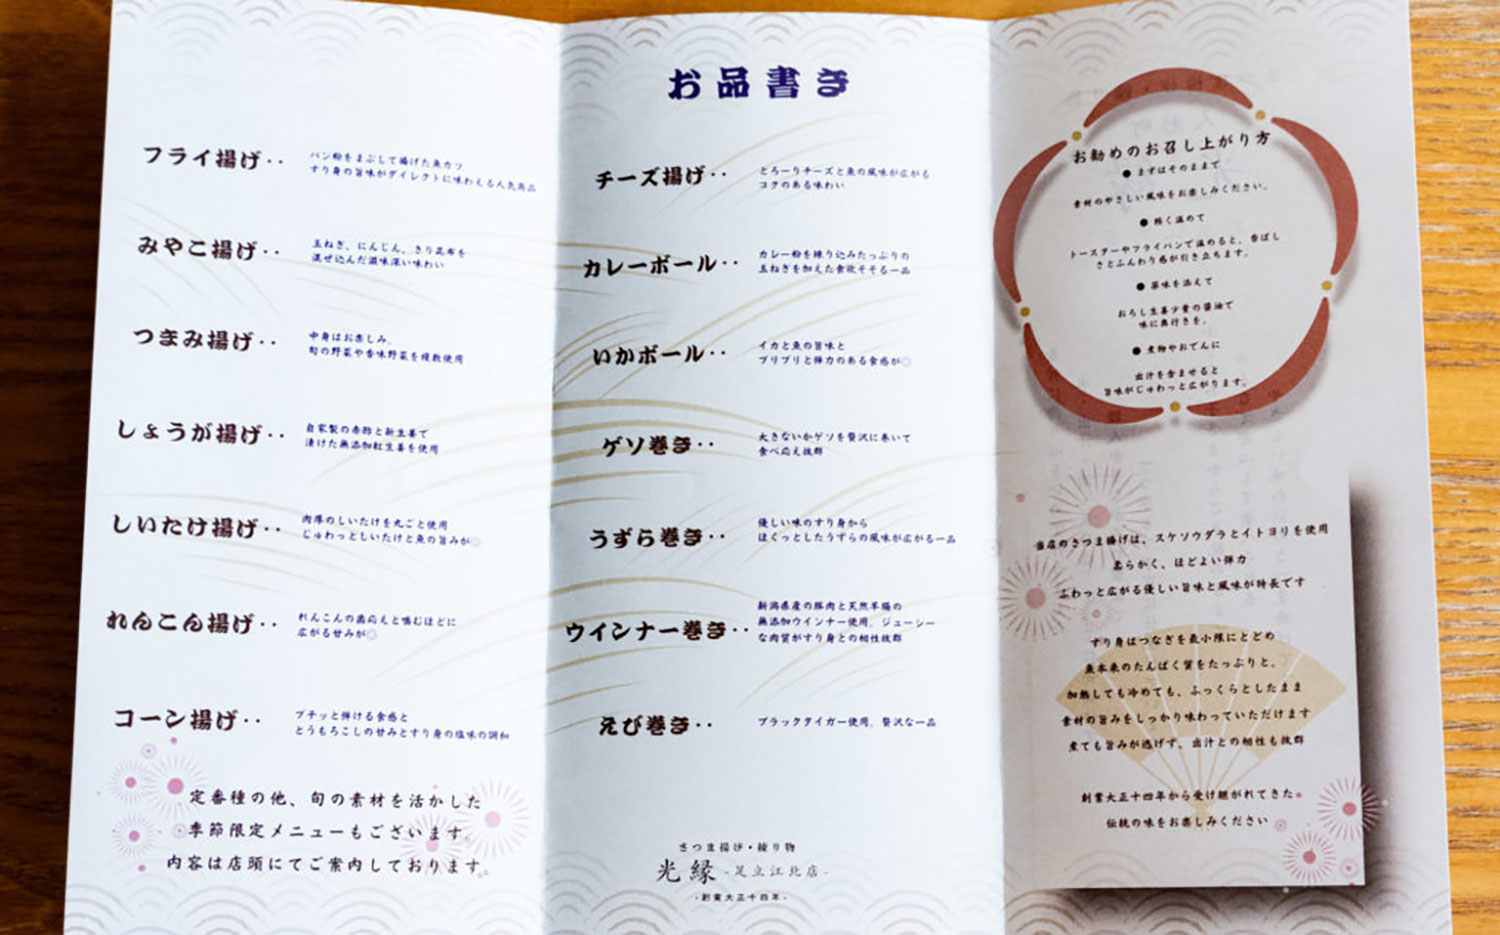 フライ揚げ‥
パン粉をまぶして揚げた魚カツ
すり身の旨味がダイレクトに味わえる人気商品
みやこ揚げ‥
玉ねぎ、にんじん、きり昆布を
混ぜ込んだ滋味深い味わい
つまみ揚げ‥
中身はお楽しみ。
旬の野菜や香味野菜を複数使用
しょうが揚げ‥
自家製の赤酢と新生姜で
漬けた無添加紅生姜を使用
しいたけ揚げ‥
肉厚のしいたけを丸ごと使用
じゅわっとしいたけと魚の旨みが◎
れんこん揚げ‥
れんこんの歯応えと噛むほどに
広がる甘みが◎
コーン揚げ‥
プチッと弾ける食感と
とうもろこしの甘みとすり身の塩味の調和
定番種の他、旬の素材を活かした
季節限定メニューもございます。
内容は店頭にてご案内しております。
お品書き
チーズ揚げ‥
とろーりチーズと魚の風味が広がる
コクのある味わい
カレーボール‥
カレー粉を練り込みたっぷりの
玉ねぎを加えた食欲そそる一品
いかボール‥
イカと魚の旨味と
プリプリと弾力のある食感が◎
ゲソ巻き‥
大きないかゲソを贅沢に巻いて
食べ応え抜群
うずら巻き‥
優しい味のすり身から
ほくっとしたうずらの風味が広がる一品
ウインナー巻き‥
新潟県産の豚肉と天然羊腸の
無添加ウインナー使用。ジューシー
な肉質がすり身との相性抜群
えび巻き‥
ブラックタイガー使用。贅沢な一品
さつま揚げ・練り物
光縁 -足立江北店-
-創業大正十四年-
お勧めのお召し上がり方
●まずはそのままで
素材のやさしい風味をお楽しみください。
●軽く温めて
トースターやフライパンで温めると、香ばし
さとふんわり感が引き立ちます。
●薬味を添えて
おろし生姜少量の醤油で
味に奥行きを。
●煮物やおでんに
出汁を含ませると
旨味がじゅわっと広がります。
当店のさつま揚げは、スケソウダラとイトヨリを使用
柔らかく、ほどよい弾力
ふわっと広がる優しい旨味と風味が特長です
すり身はつなぎを最小限にとどめ
魚本来のたんぱく質をたっぷりと。
加熱しても冷めても、ふっくらとしたまま
素材の旨みをしっかり味わっていただけます
煮ても旨みが逃げず、出汁との相性も抜群
創業大正十四年から受け継がれてきた
伝統の味をお楽しみください